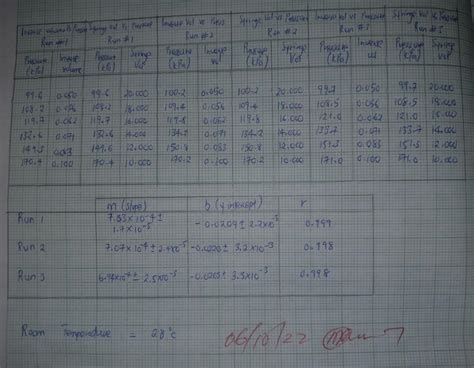 Inverse volume Vs Pressure Run #1 | Syringe Vol Vs Pressure Run #1 | Inverse Vol Vs Press Run #2 | Syringe Vol vs Pressure Run #2 | Inverse Vol vs Pressure Run #3 | Syringe Vol vs Pressure Run #3
Pressure (kPa) | Inverse Volume | Pressure (kPa) | Syringe Vol | Pressure (kPa) | Inverse Vol | Pressure (kPa) | Syringe Vol | Pressure (kPa) | Inverse Vol | Pressure (kPa) | Syringe Vol
99.6 | 0.050 | 99.6 | 20.000 | 100.2 | 0.050 | 100.2 | 20.000 | 99.7 | 0.050 | 99.7 | 20.000
108.2 | 0.056 | 108.2 | 18.000 | 109.4 | 0.056 | 109.4 | 18.000 | 108.5 | 0.056 | 108.5 | 18.000
119.7 | 0.062 | 119.7 | 16.000 | 119.8 | 0.062 | 119.8 | 16.000 | 121.0 | 0.062 | 121.0 | 16.000
132.6 | 0.071 | 132.6 | 14.000 | 134.2 | 0.071 | 134.2 | 14.000 | 133.7 | 0.071 | 133.7 | 14.000
149.3 | 0.083 | 149.6 | 12.000 | 150.8 | 0.083 | 150.8 | 12.000 | 151.3 | 0.083 | 151.3 | 12.000
170.4 | 0.100 | 170.4 | 10.000 | 170.2 | 0.100 | 170.2 | 10.000 | 171.0 | 0.100 | 171.0 | 10.000
m (slope) | b (y intercept) | r
Run 1 | 7.03×10⁻⁴ ± 1.7×10⁻⁵ | -0.0209 ± 2.2×10⁻³ | 0.999
Run 2 | 7.07×10⁻⁴ ± 2.4×10⁻⁵ | -0.0220 ± 3.2×10⁻³ | 0.998
Run 3 | 6.98×10⁻⁴ ± 2.5×10⁻⁵ | -0.0205 ± 3.5×10⁻³ | 0.998
Room Temperature = 28°c
06/10/22